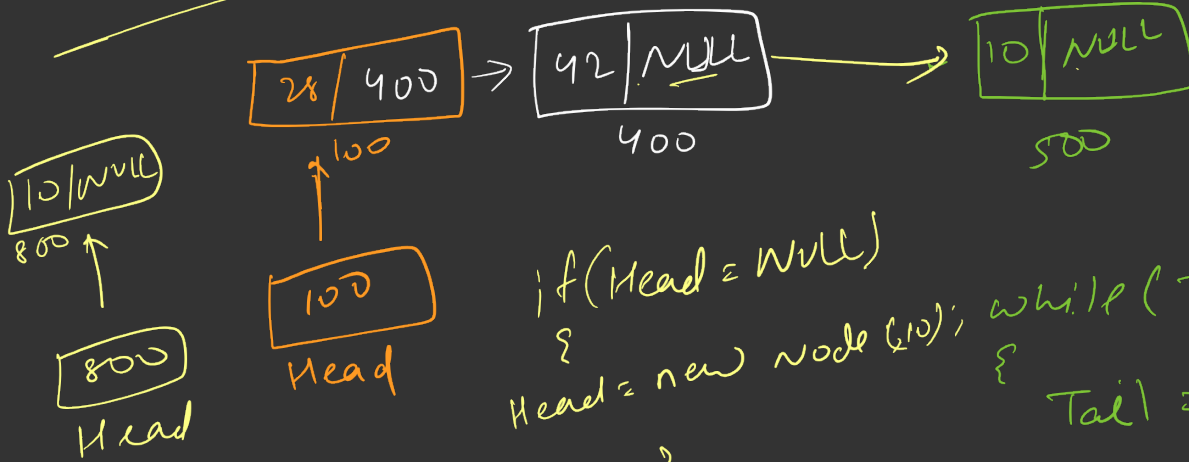 28 400 42 NULL 10 NULL
100 400 500
10 NULL
800
100
800
Head Head
if(Head = NULL)
{
Head = new Node (10);
}
while(
{
Tail =